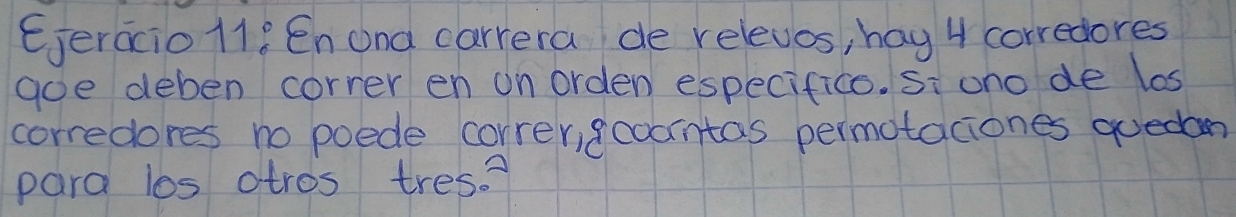 Ejercicio 11: En una carrera de relevos, hay 4 corredores
que deben correr en un orden especifico. Si uno de los
corredores no puede correr, ¿cuantas permutaciones quedan
para los otros tres?